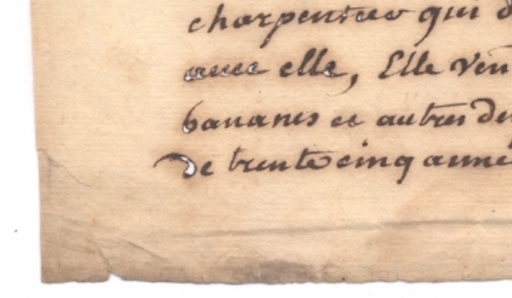 charpentier qui
avec elle, Elle ven
bananes et autres de
de trente cinq anné